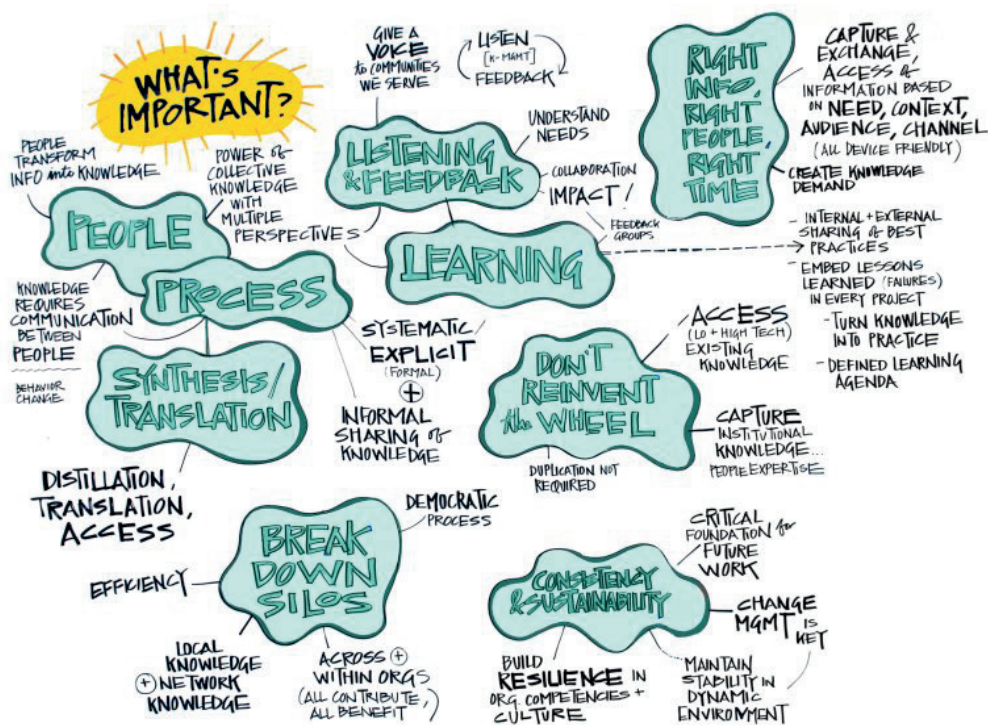 WHAT'S
IMPORTANT?
PEOPLE
TRANSFORM
INFO into KNOWLEDGE
POWER of
COLLECTIVE
KNOWLEDGE
WITH
MULTIPLE
PERSPECTIVES
PEOPLE
PROCESS
KNOWLEDGE
REQUIRES
COMMUNICATION
BETWEEN
PEOPLE
BEHAVIOR
CHANGE
SYNTHESIS/
TRANSLATION
DISTILLATION,
TRANSLATION,
ACCESS
SYSTEMATIC/
EXPLICIT
(FORMAL)
+
INFORMAL
SHARING of
KNOWLEDGE
GIVE A
VOICE
to COMMUNITIES
WE SERVE
LISTEN
[K-MGMT]
FEEDBACK
LISTENING
& FEEDBACK
UNDERSTAND
NEEDS
COLLABORATION
IMPACT!
FEEDBACK
GROUPS
LEARNING
RIGHT
INFO,
RIGHT
PEOPLE,
RIGHT
TIME
CAPTURE &
EXCHANGE,
ACCESS of
INFORMATION BASED
ON NEED, CONTEXT,
AUDIENCE, CHANNEL
(ALL DEVICE FRIENDLY)
CREATE KNOWLEDGE
DEMAND
- INTERNAL + EXTERNAL
SHARING of BEST
PRACTICES
- EMBED LESSONS
LEARNED (FAILURES)
IN EVERY PROJECT
- TURN KNOWLEDGE
INTO PRACTICE
- DEFINED LEARNING
AGENDA
DON'T
REINVENT
the WHEEL
ACCESS
(LO + HIGH TECH)
EXISTING
KNOWLEDGE
CAPTURE
INSTITUTIONAL
KNOWLEDGE...
PEOPLE EXPERTISE
DUPLICATION NOT
REQUIRED
BREAK
DOWN
SILOS
DEMOCRATIC
PROCESS
EFFICIENCY
LOCAL
KNOWLEDGE
+ NETWORK
KNOWLEDGE
ACROSS +
WITHIN ORGS
(ALL CONTRIBUTE,
ALL BENEFIT)
CONSISTENCY
& SUSTAINABILITY
CRITICAL
FOUNDATION for
FUTURE
WORK
CHANGE
MGMT IS
KEY
BUILD
RESILIENCE IN
ORG. COMPETENCIES +
CULTURE
MAINTAIN
STABILITY IN
DYNAMIC
ENVIRONMENT